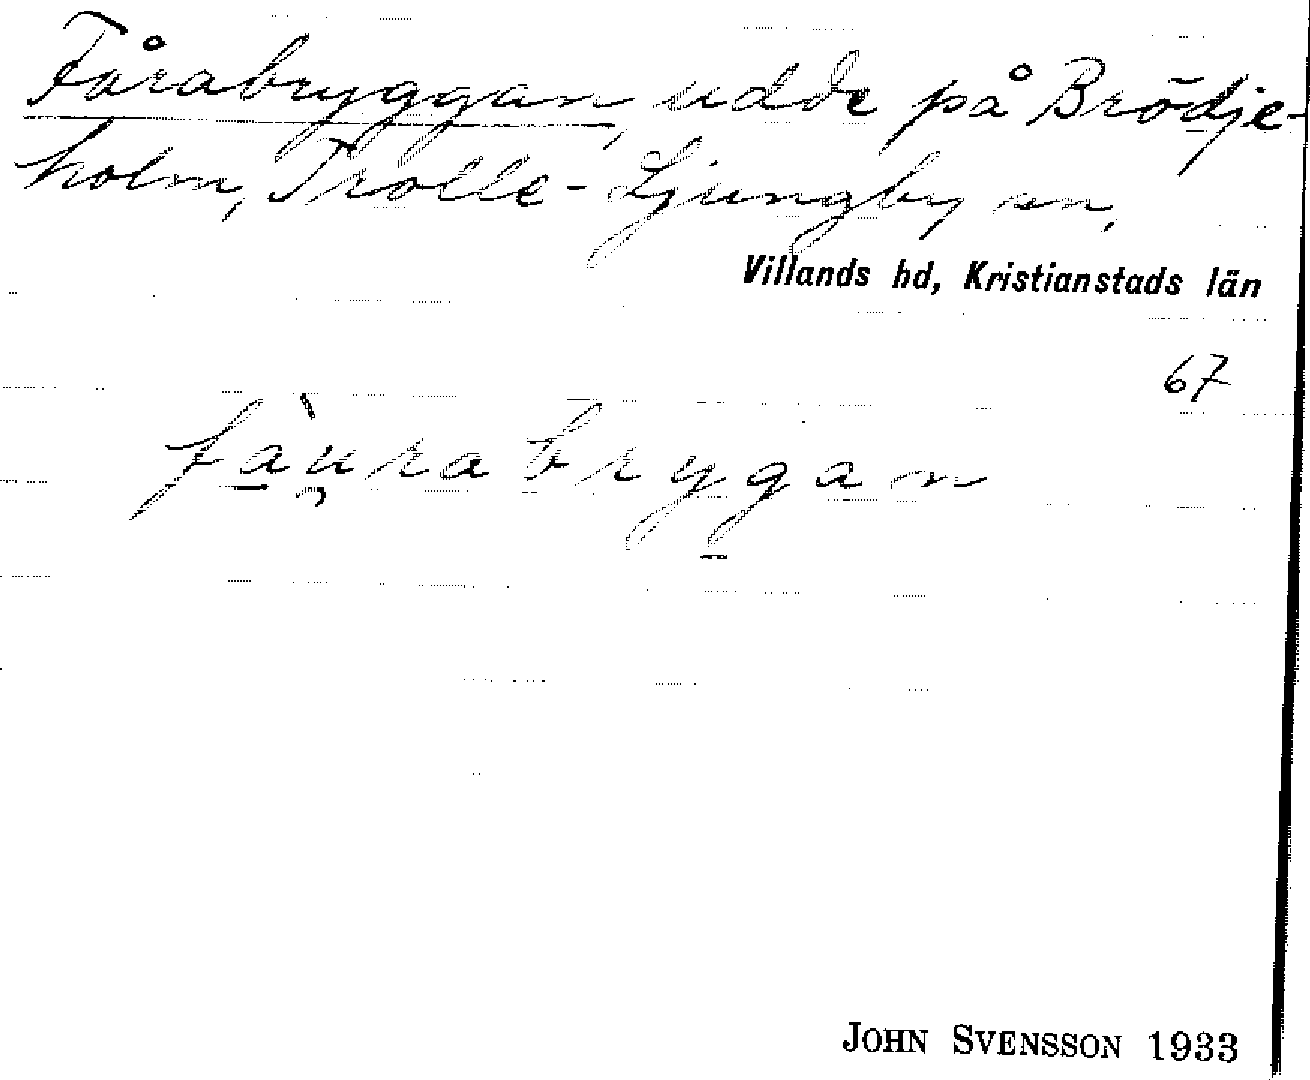 Fårabryggan, udde på Brödje-
holm, Trolle-Ljungby sn,
Villands hd, Kristianstads län
67
fa̠ù̯rabryg̠an
JOHN SVENSSON 1933